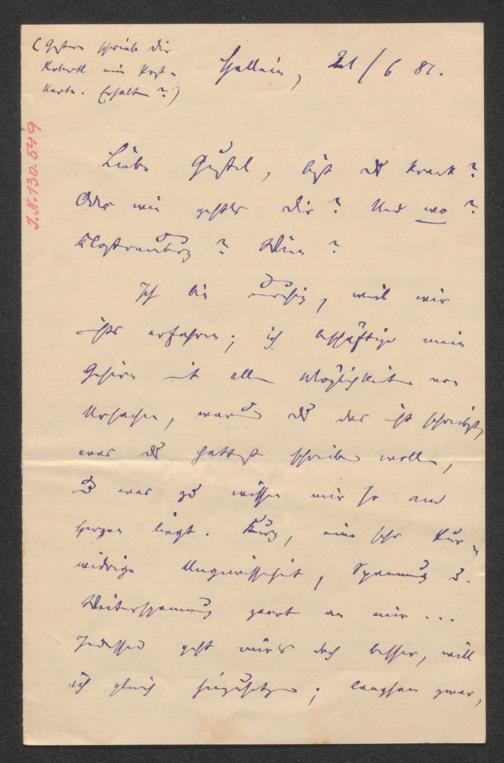 (Gestern schrieb Dir
Robertl eine Post-
karte. Erhalten?)
Hallein, 21/6 81.
J.N. 130.549
Liebe Gustel, bist du krank?
Oder wie geht's Dir? Und wo?
Klosterneuburg? Wien?
Ich bin unruhig, weil wir
nichts erfahren; ich beschäftige mein
Gehirn mit allen Möglichkeiten von
Ursachen, warum du das nicht schreibst,
was du hattest schreiben wollen,
u. was zu wissen mir so am
Herzen liegt. Kurz, eine sehr kur-
widrige Ungewissheit, Spannung u.
Weiterspannung zerrt an mir ...
Indessen geht mir's doch besser, will
ich gleich hinzusetzen; langsam zwar,